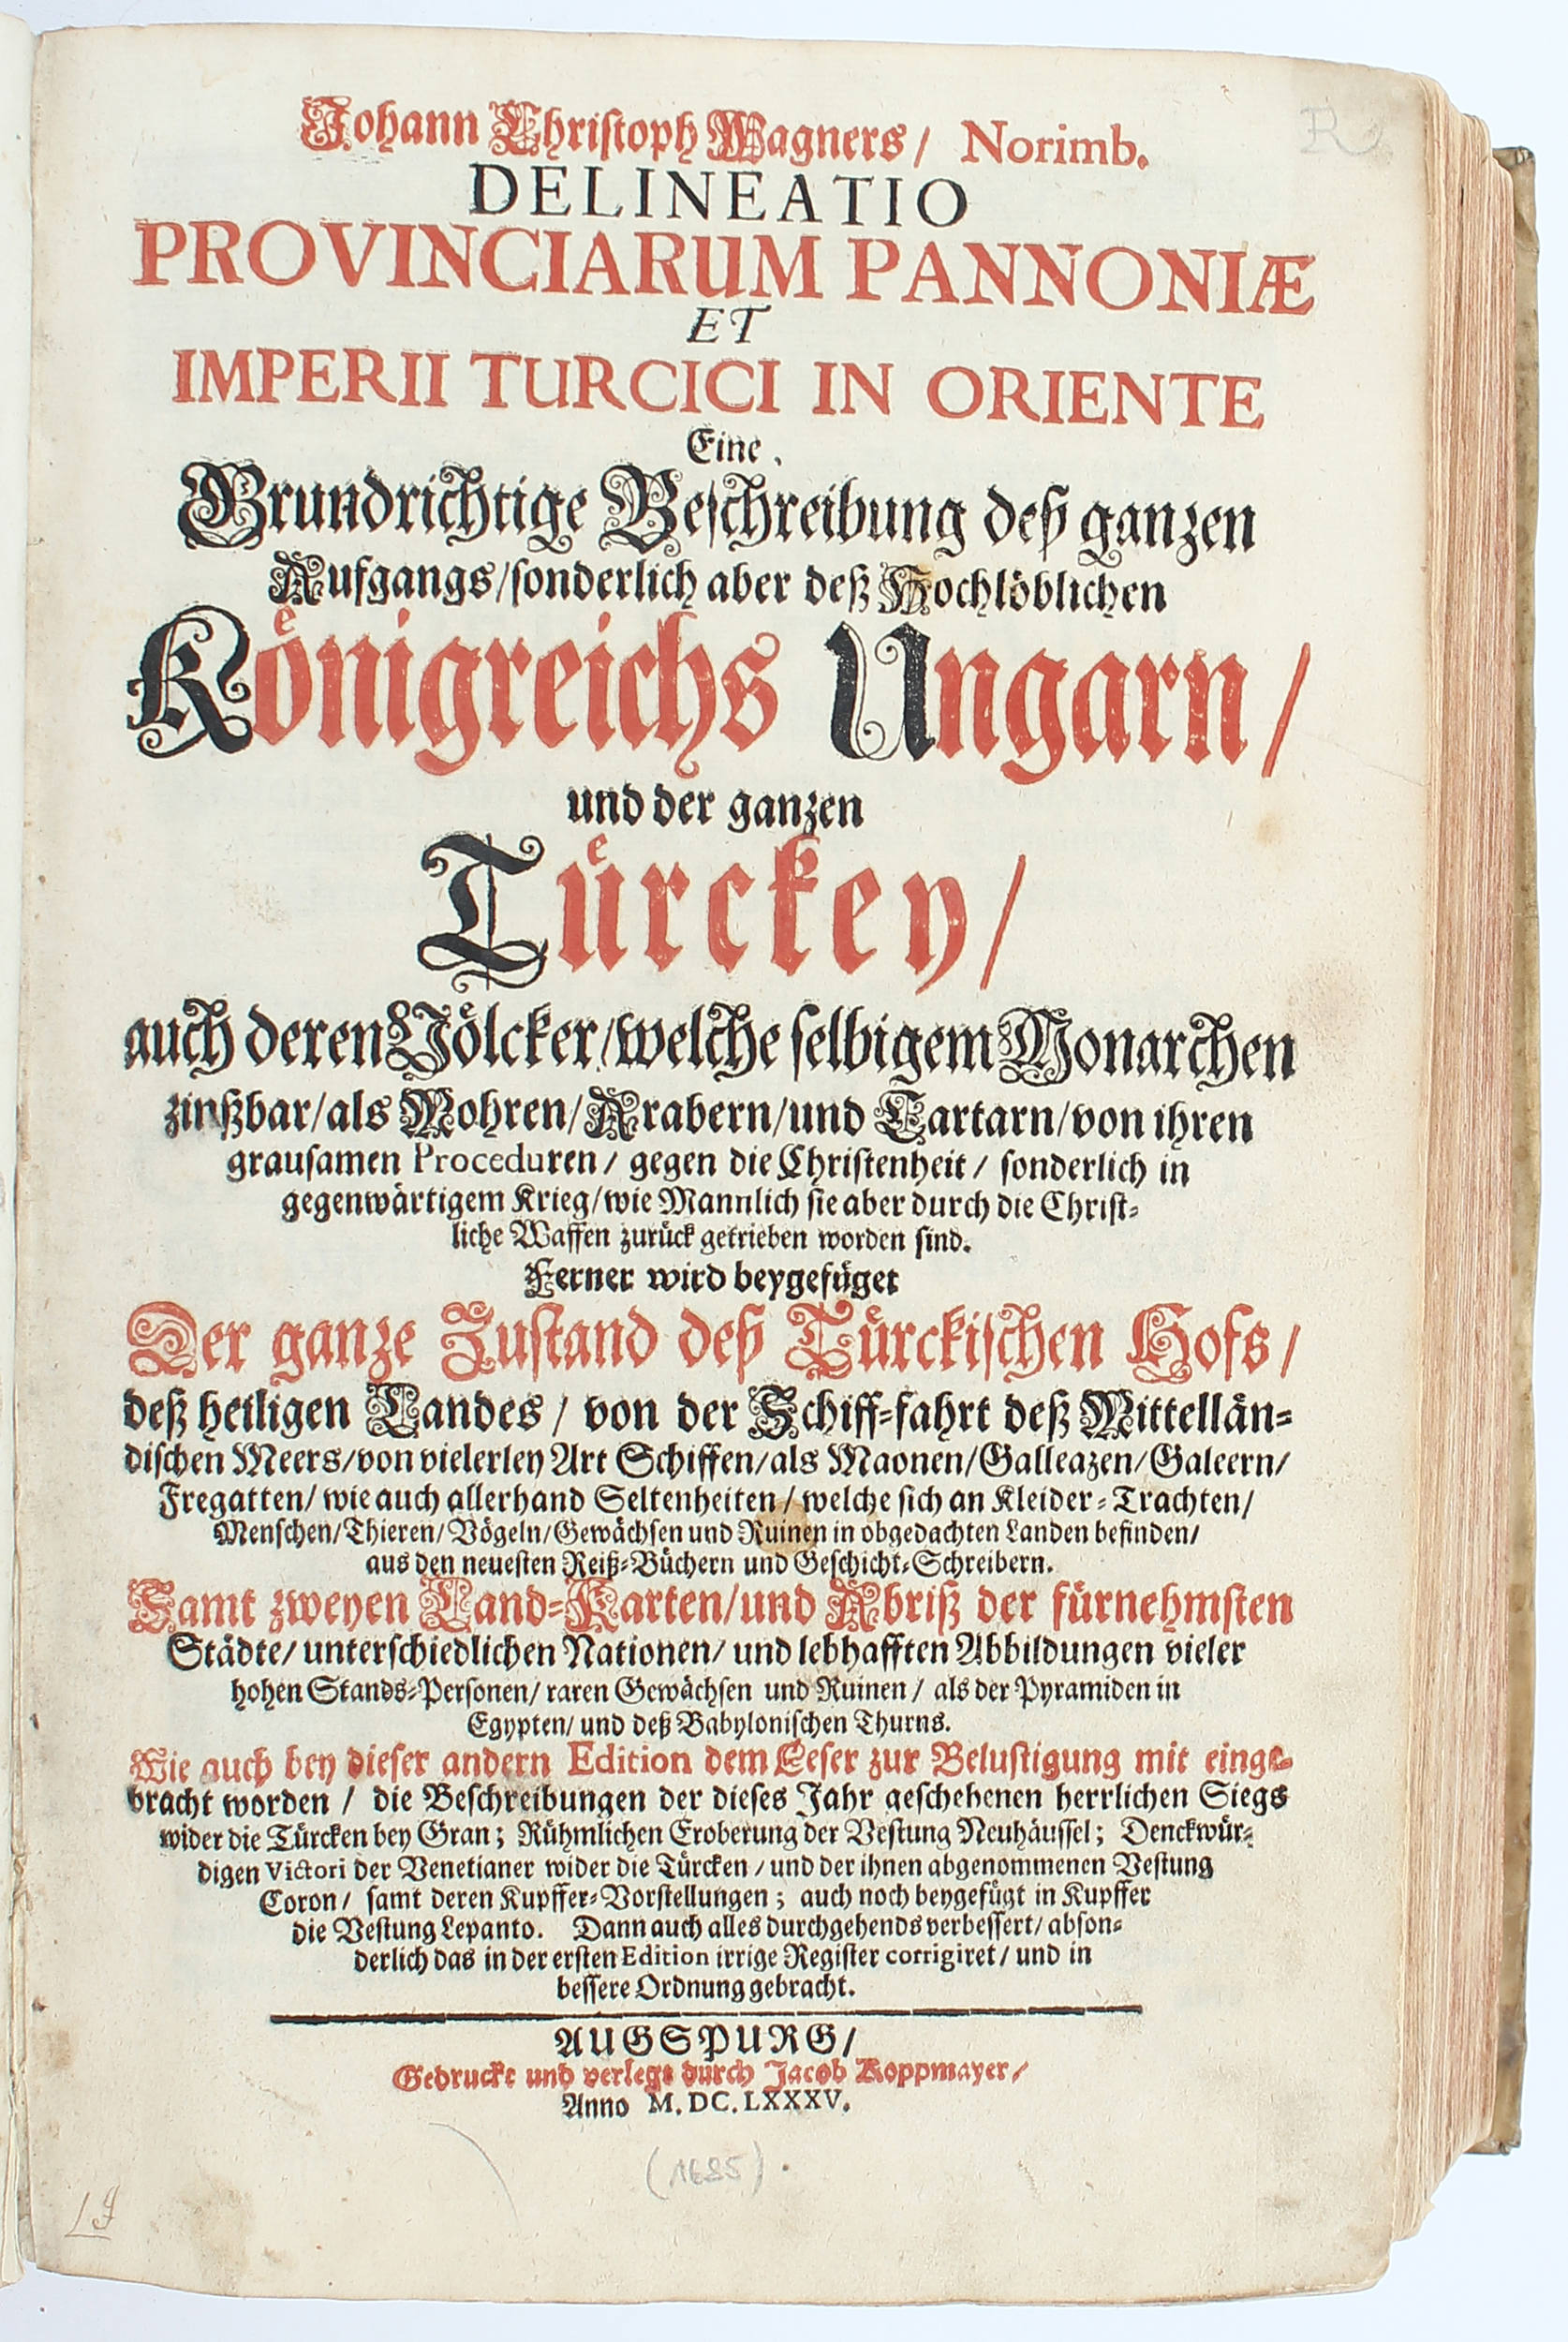 Johann Christoph Wagners/ Norimb.
DELINEATIO
PROVINCIARUM PANNONIÆ
ET
IMPERII TURCICI IN ORIENTE
Eine
Grundrichtige Beschreibung deß ganzen
Aufgangs/sonderlich aber deß Hochlöblichen
Königreichs Ungarn/
und der ganzen
Türckey/
auch deren Völcker/welche selbigem Monarchen
zinßbar/als Mohren/Arabern/und Tartarn/von ihren
grausamen Proceduren/ gegen die Christenheit/ sonderlich in
gegenwärtigem Krieg/wie Mannlich sie aber durch die Christ-
liche Waffen zurück getrieben worden sind.
Ferner wird beygefüget
Der ganze Zustand deß Türckischen Hofs/
deß heiligen Landes/ von der Schiff-fahrt deß Mittellän-
dischen Meers/von vielerley Art Schiffen/als Maonen/Galleazen/Galeern/
Fregatten/ wie auch allerhand Seltenheiten/ welche sich an Kleider-Trachten/
Menschen/Thieren/Vögeln/Gewächsen und Ruinen in obgedachten Landen befinden/
aus den neuesten Reiß-Büchern und Geschicht-Schreibern.
Samt zweyen Land-Karten/und Abriß der fürnehmsten
Städte/ unterschiedlichen Nationen/ und lebhafften Abbildungen vieler
hohen Stands-Personen/ raren Gewächsen und Ruinen/ als der Pyramiden in
Egypten/ und deß Babylonischen Thurns.
Wie auch bey dieser andern Edition dem Leser zur Belustigung mit einge-
bracht worden/ die Beschreibungen der dieses Jahr geschehenen herrlichen Siegs
wider die Türcken bey Gran; Rühmlichen Eroberung der Vestung Neuhäussel; Denckwür-
digen Victori der Venetianer wider die Türcken/ und der ihnen abgenommenen Vestung
Coron/ samt deren Kupffer-Vorstellungen; auch noch beygefügt in Kupffer
die Vestung Lepanto. Dann auch alles durchgehends verbessert/ abson-
derlich das in der ersten Edition irrige Register corrigiret/ und in
bessere Ordnung gebracht.
AUGSPURG/
Gedruckt und verlegt durch Jacob Koppmayer/
Anno M. DC. LXXXV.
(1685).